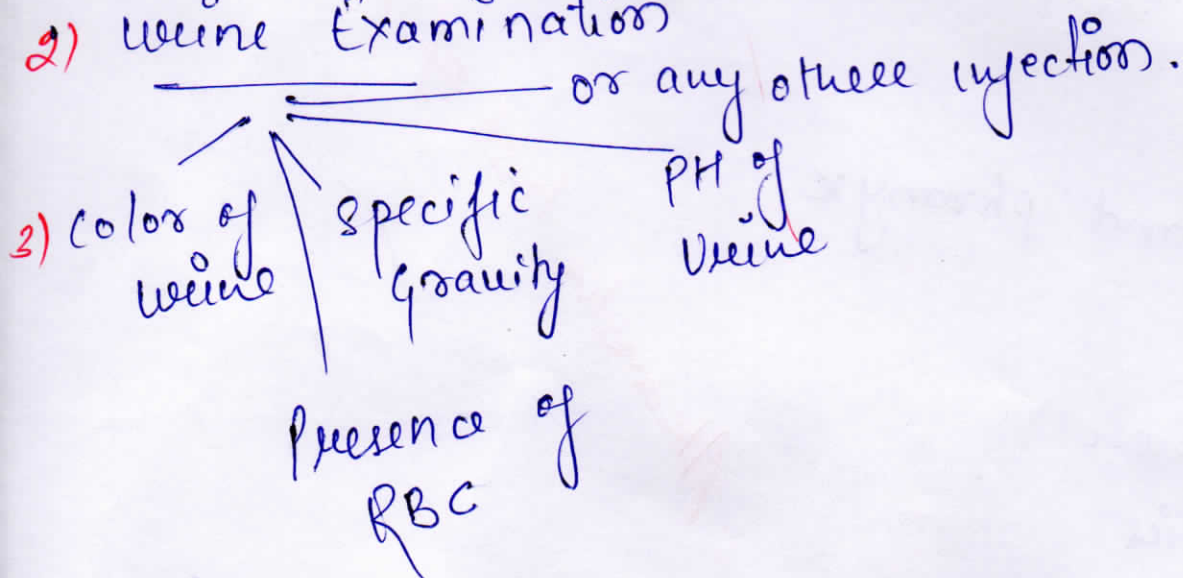 2) Urine Examination
or any other infection.
3) Color of urine
Specific Gravity
PH of Urine
Presence of RBC